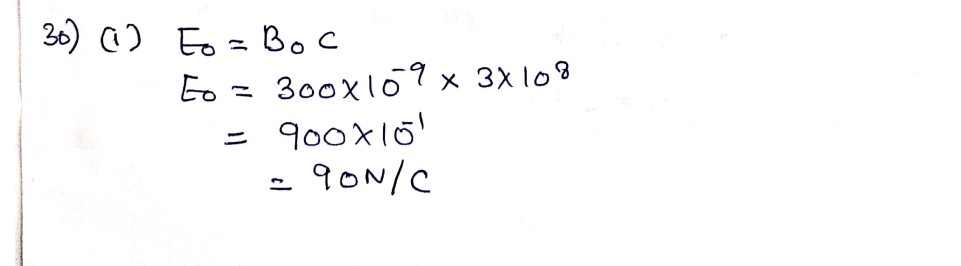 30) (i) E₀ = B₀ C
E₀ = 300×10⁻⁹ × 3×10⁸
= 900×10⁻¹
= 90N/C